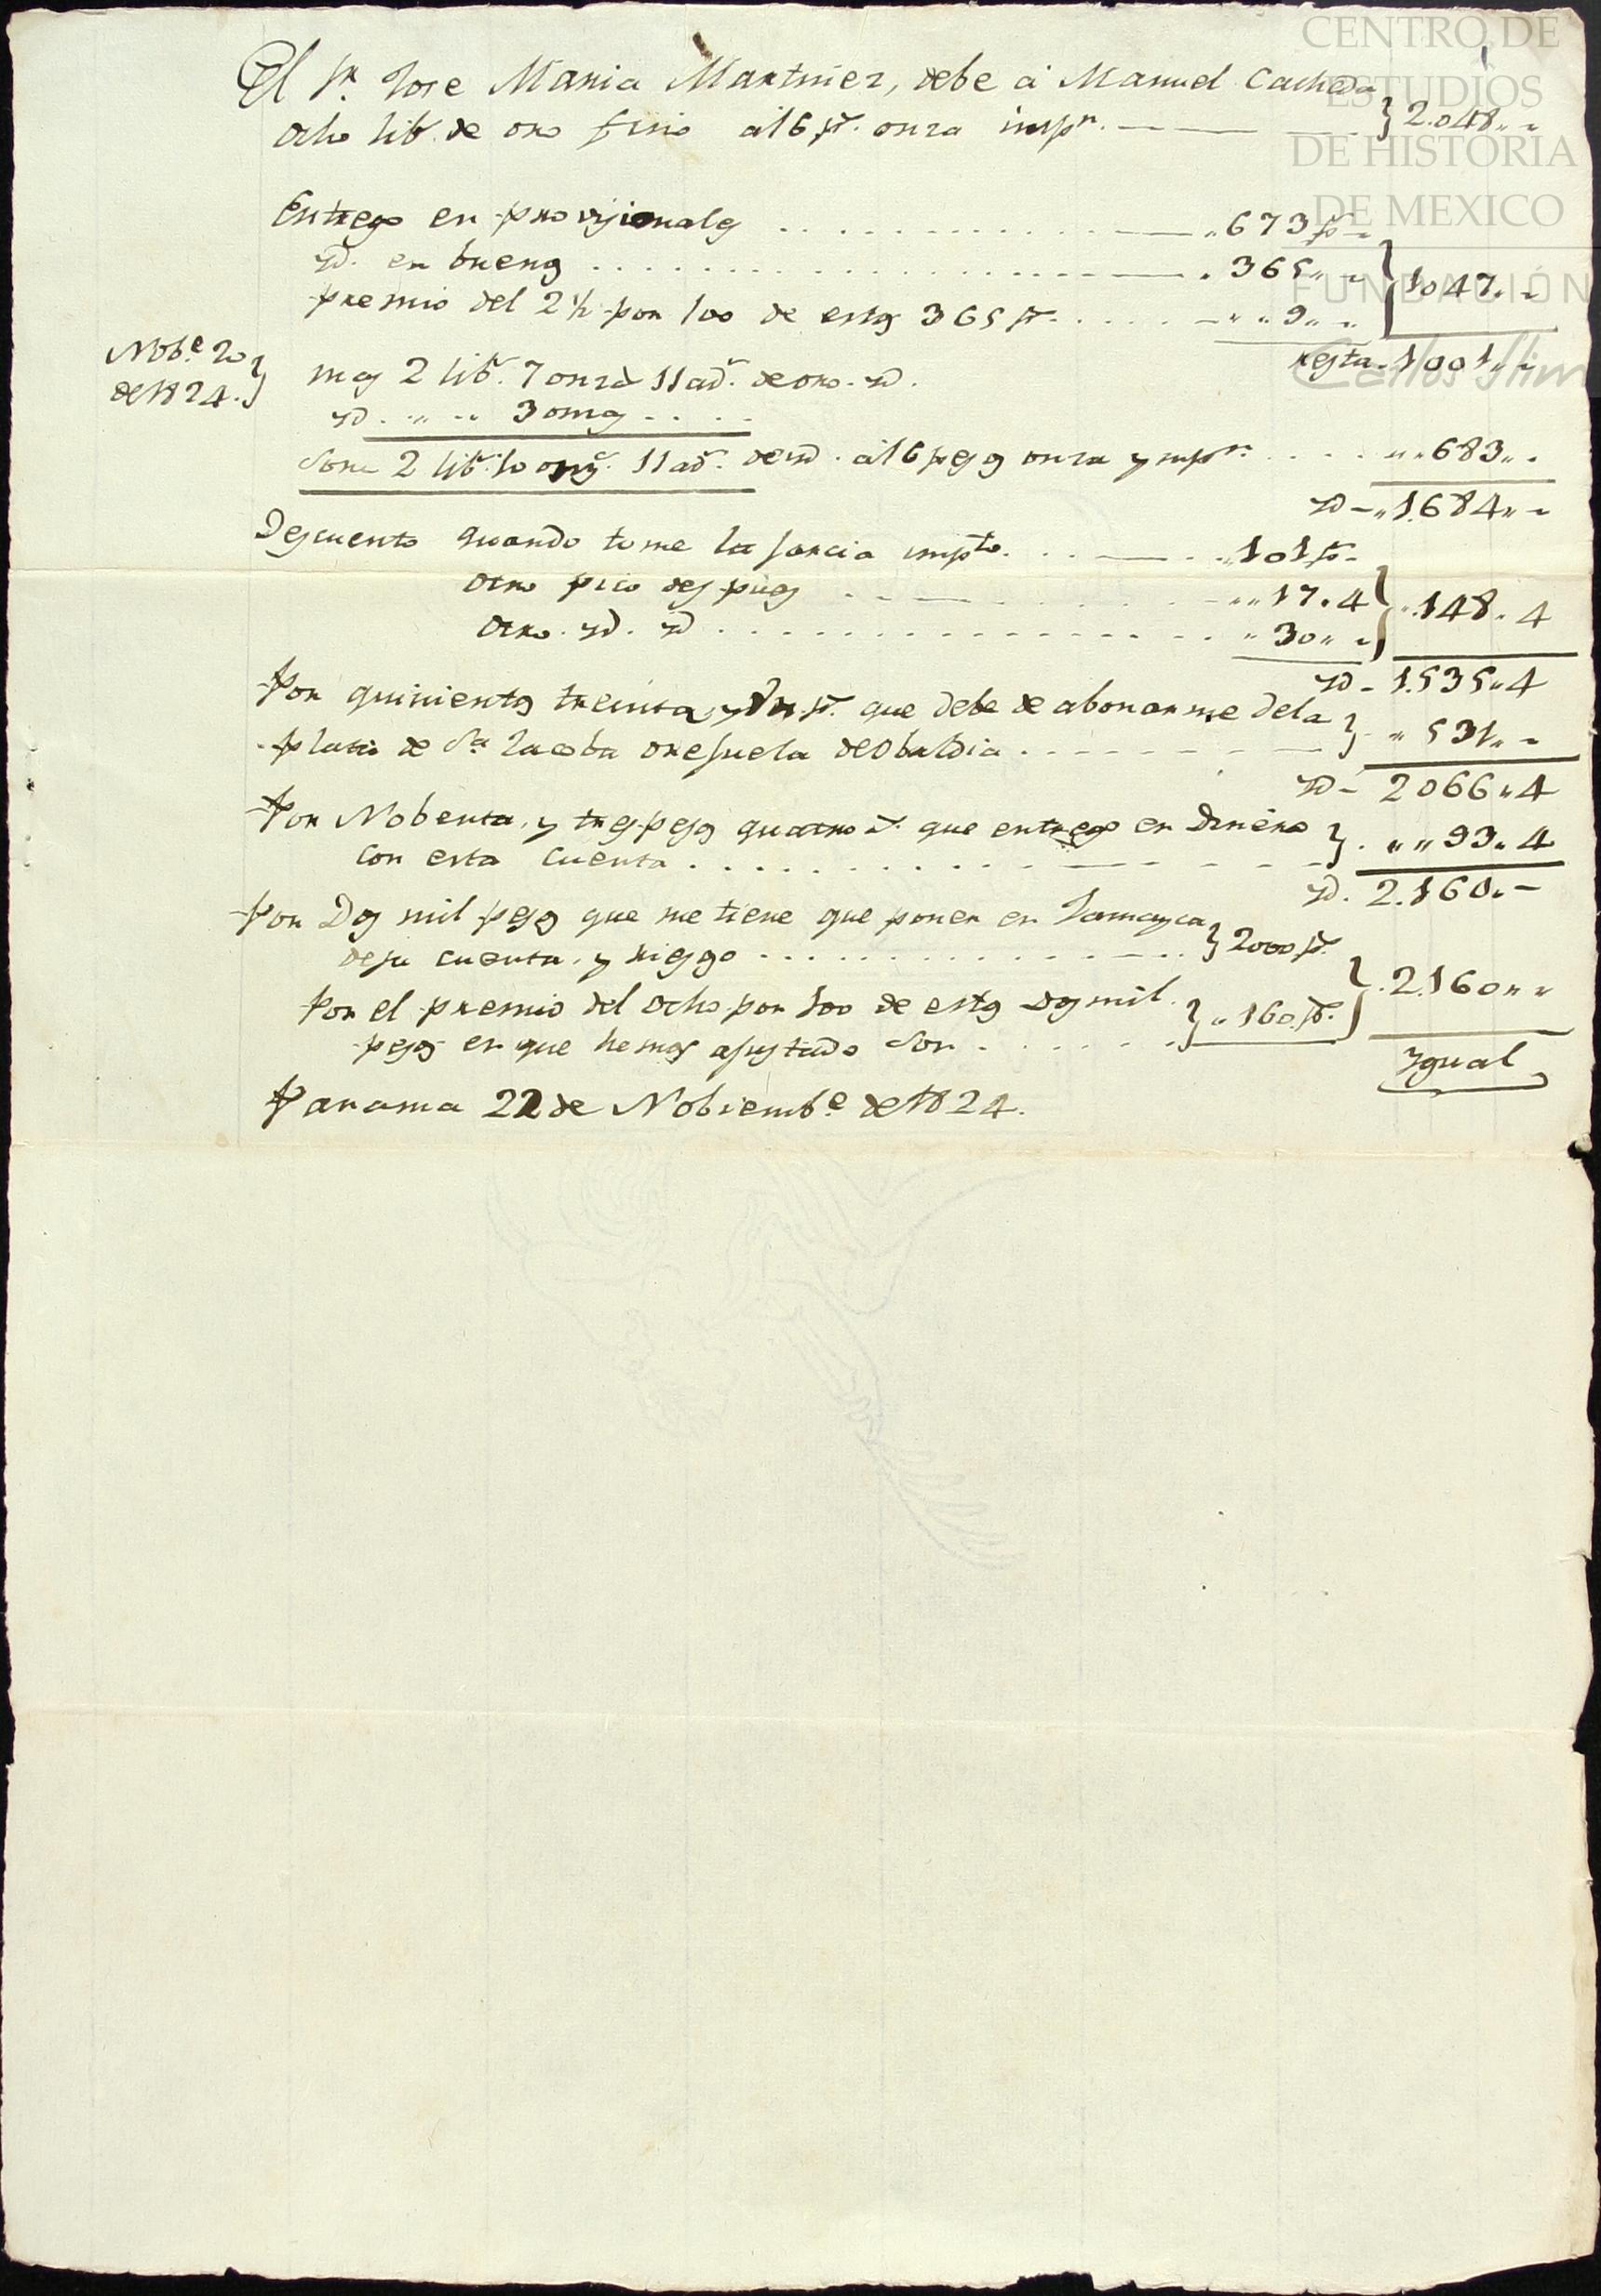 CENTRO DE
ESTUDIOS
DE HISTORIA
DE MEXICO
FUNDACIÓN
Carlos Slim
El Sr. Jose Maria Martinez, debe a Manuel Cacheda
ocho lib. de oro fino a 16 ps. onza impn. } 2.048,, -
Entrego en provisionales ,,673 ps -
yd. en buenos ,365,, -
premio del 2 1/2 por 100 de estos 365 ps. ,, ,,9,, ,, } 1047,, -
resta - 1001,, -
Nobe. 20 } de 1824.
mas 2 lib. 7 onzas 11 ads. de oro. yd.
yd. ,, ,, 3 onzas
Son 2 lib. 10 onzs. 11 ads. de yd. a 16 pesos onza y impn. ,, ,,683,, -
yd - ,,1.684,, -
Descuento quando tome la jarcia impto. ,,101 ps -
otro pico despues ,,17.4
otro. yd. yd ,,30,, - } ,,148,,4
yd - 1.535,,4
Por quinientos treinta y un ps. que debe de abonarme de la
plata de Sa. Jacoba orejuela de Obaldia } ,,531,, -
yd - 2066,,4
Por Nobenta y tres pesos quatro rs. que entrego en Dinero
con esta cuenta } ,, ,,93,,4
yd. 2.160,, -
Por Dos mil pesos que me tiene que poner en Jamayca
de su cuenta y riesgo } 2000 ps.
Por el premio del ocho por 100 de estos Dos mil
pesos en que hemos ajustado Son } ,,160 ps. } .2.160,, ,,
Ygual
Panama 22 de Nobiembe. de 1824.